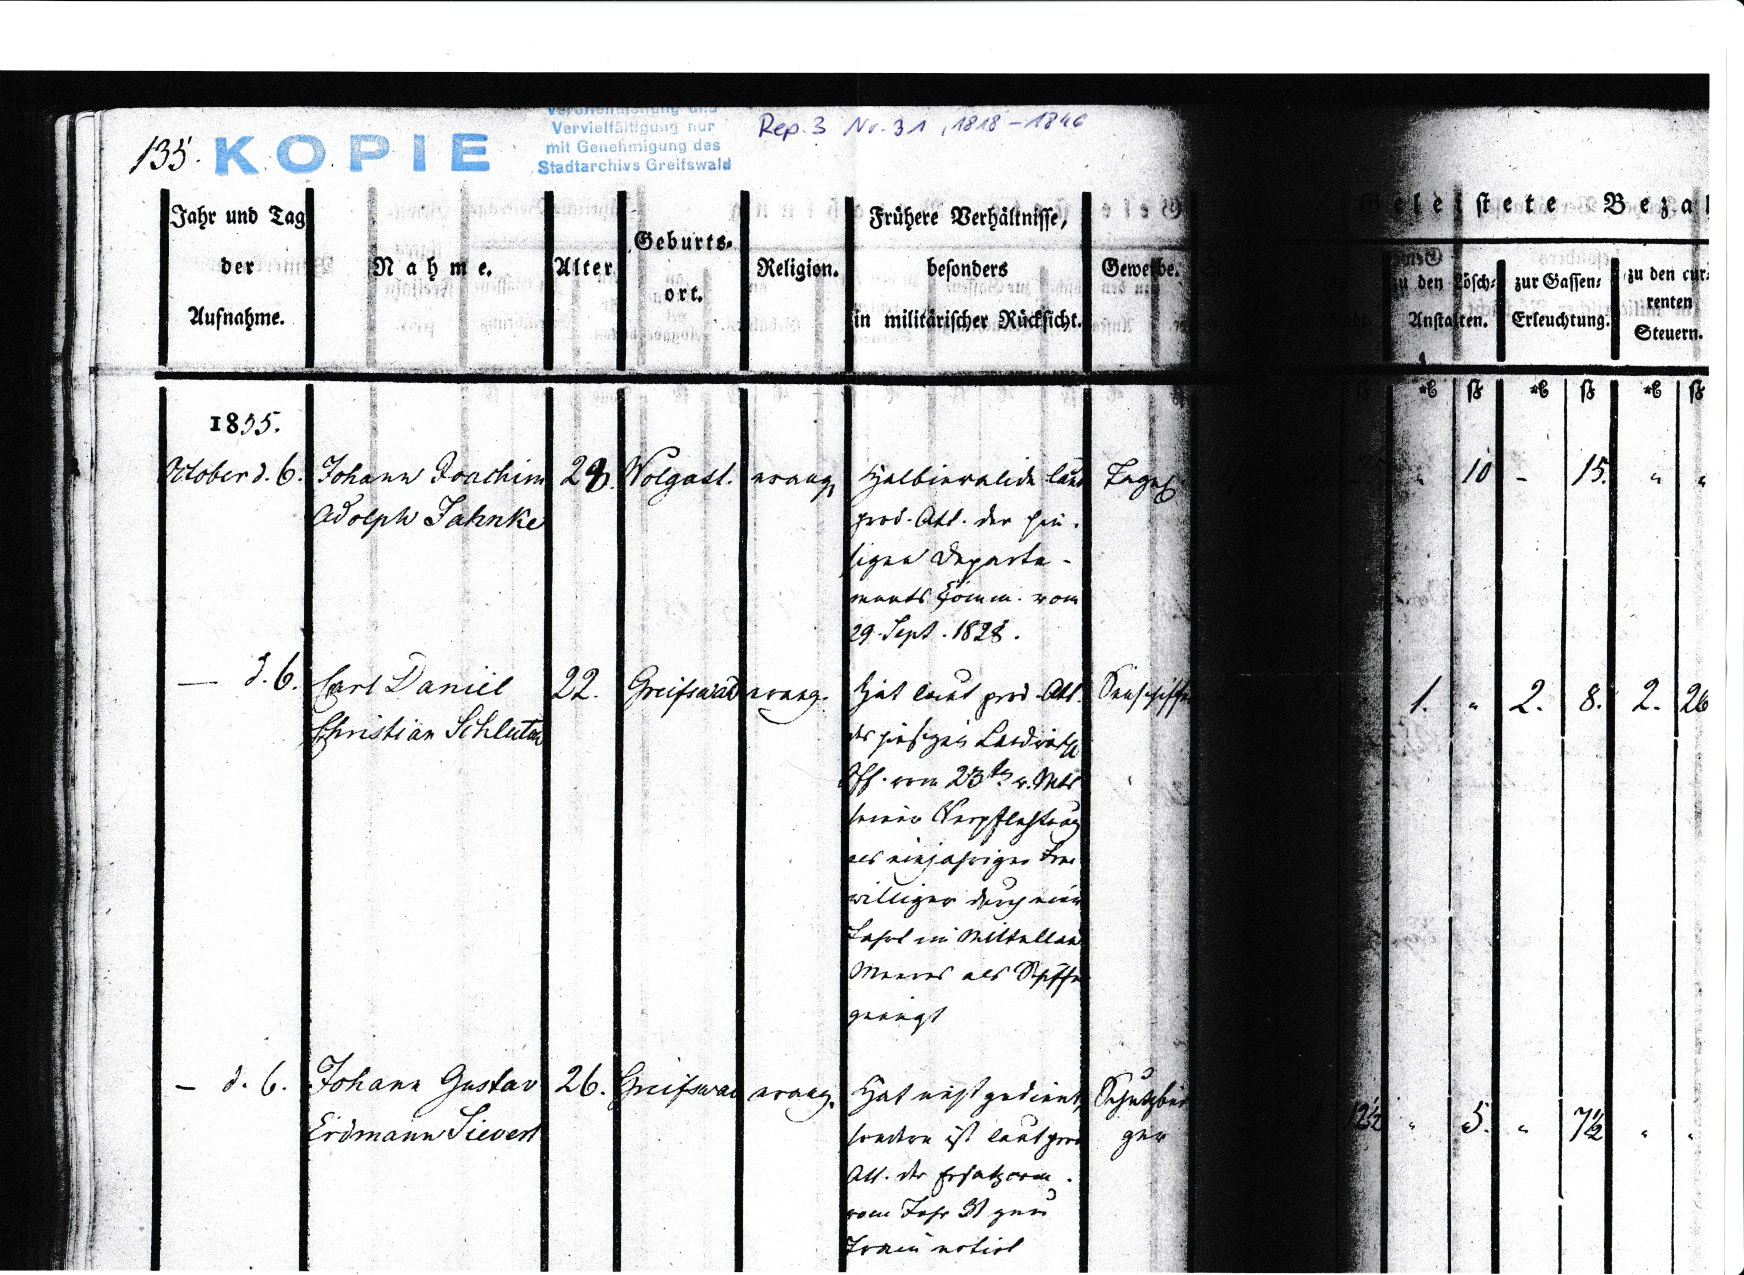 135.
KOPIE
Veröffentlichung und
Vervielfältigung nur
mit Genehmigung des
Stadtarchivs Greifswald
Rep. 3 Nr. 31, 1818 – 1846
Jahr und Tag
der
Aufnahme.
Nahme.
Alter
Geburts-
ort.
Religion.
Frühere Verhältnisse,
besonders
in militärischer Rücksicht.
Gewerbe.
Geleistete Bezal
zu den Lösch-
Anstalten.
zur Gassen-
Erleuchtung.
zu den cur-
renten
Steuern.
1835.
October d. 6.
Johann Joachim
Adolph Jahnke
28.
Wolgast.
evang.
Halbinvalide laut
prod. Att. der hie-
sigen Departe-
ments Comm. vom
29. Sept. 1828.
10 - 15.
— d. 6.
Carl Daniel
Christian Schluter
22.
Greifswald
evang.
Hat laut prod. Att.
des hiesigen
vom 23ten v. Mts
seiner Verpflichtung
als einjähriger Frei-
williger durch eine
Fahrt im Mittelländ
Meeres als Schiffer
genügt
Seeschiffer
1. " 2. 8. 2. 26
— d. 6.
Johann Gustav
Erdmann Sievert
26.
Greifswald
evang.
Hat nicht gedient,
sondern ist laut prod
Att. der Ersatzcom.
vom Jahr 31 zum
Train notirt
Schutzbür
ger
12½ " 5. " 7½ " "